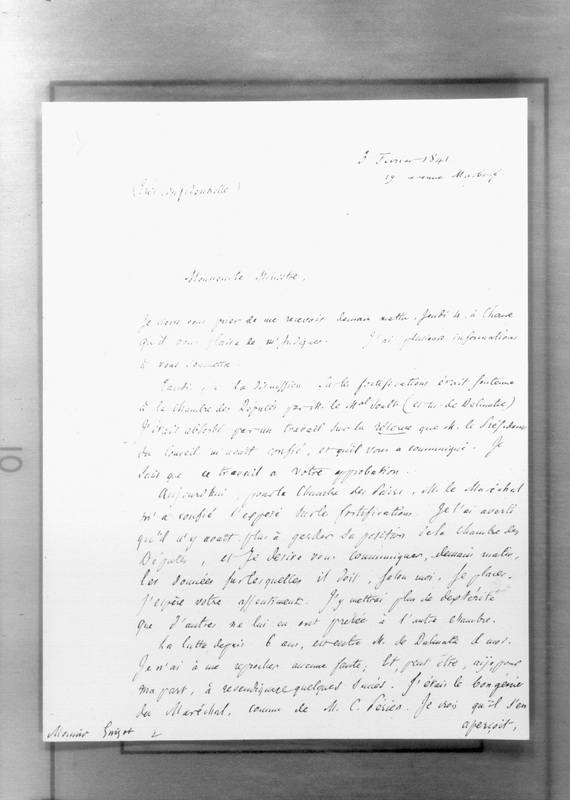 3 Février 1841
19 avenue Marbeuf.
(Très confidentielle)
Monsieur le Ministre,
Je viens vous prier de me recevoir demain matin, Jeudi 4, à l'heure
qu'il vous plaira de m'indiquer. J'ai plusieurs informations
à vous soumettre.
Tandis que la discussion sur les fortifications était soutenue
à la chambre des Députés par M. le Mal Soult (de Dalmatie)
j'étais absorbé par un travail sur la réserve que M. le Président
du Conseil m'avait confié, et qu'il vous a communiqué. Je
sais que ce travail a votre approbation.
Aujourd'hui, pour la Chambre des Pairs, M. le Maréchal
m'a confié l'exposé sur les fortifications. Je l'ai averti
qu'il n'y avait plus à garder sa position de la chambre des
Députés, et je désire vous communiquer, demain matin,
les données sur lesquelles il doit, selon moi, se placer.
J'espère votre assentiment. J'y mettrai plus de dextérité
que d'autres ne lui en ont prêtée à l'autre chambre.
La lutte depuis 6 ans, est entre M. de Dalmatie et moi.
Je n'ai à me reprocher aucune faute; et peut être, ai-je, pour
ma part, à revendiquer quelques succès. J'étais le bon génie
du Maréchal, comme de M. C. Périer. Je crois qu'il s'en
aperçoit,
Monsieur Guizot